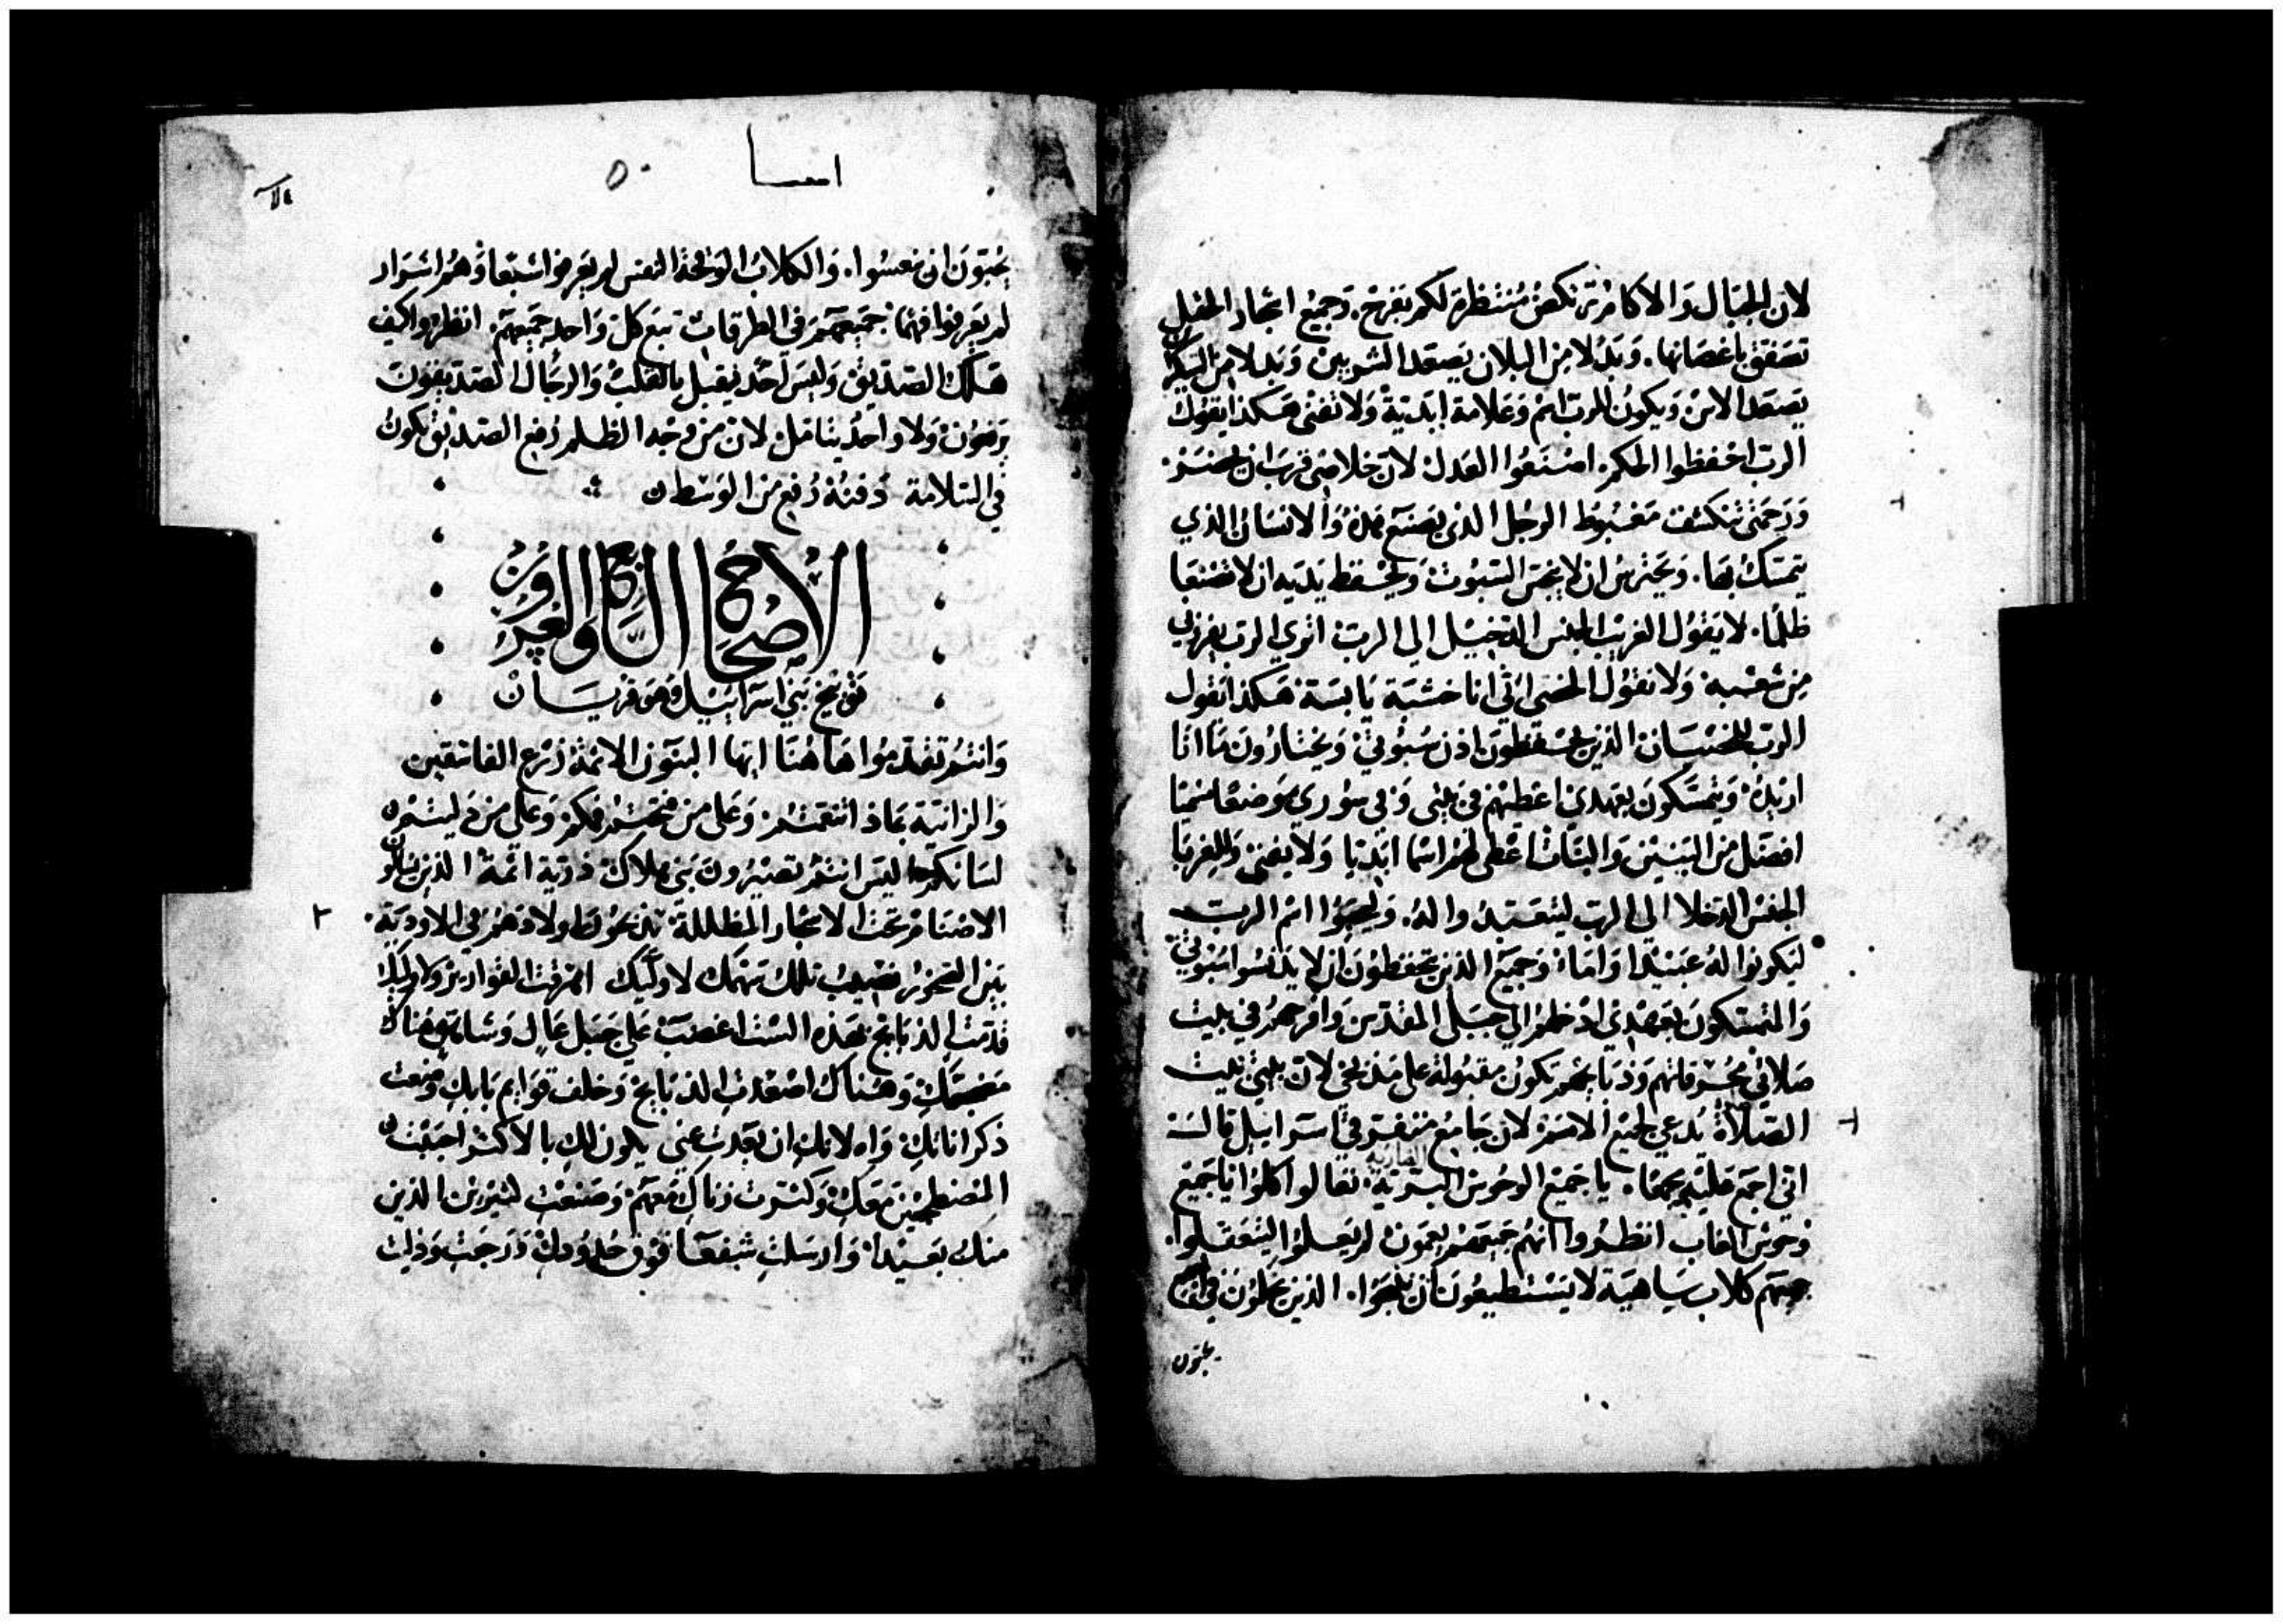 لان الجبال والاكام تركض منتظرة لكم بفرح. وجميع اشجار الحقل
تصفق باغصانها. وبدلا من البلان يصعد الشربين وبدلا من السيكران
يصعد الاس ويكون للرب اسم وعلامة ابدية ولا تفنى هكذا يقول
الرب احفظوا الحكم. اصنعوا العدل لان خلاصي قرب ان يحضر.
ورحمتي تنكشف مغبوط الرجل الذي يصنع هذه والانسان الذي
يتمسك بها. ويحترس ان لا ينجس السبوت ويحفظ يديه ان لا تصنعا
ظلما. لا يقول الغريب الجنس الدخيل الى الرب اترى الرب يفرزني
من شعبه ولا يقول الخصي اني انا خشبة يابسة هكذا يقول
الرب للخصيان الذين يحفظون سبوتي ويختارون ما انا
اريده ويتمسكون بعهدي اعطيهم في بيتي وفي سوري موضعا سميا
افضل من البنين والبنات اعطي لهم اسما ابديا ولا يفنى والغربا
الجنس الدخلا الى الرب ليتعبدوا له. وليحبوا اسم الرب
ليكونوا له عبيدا واماء وجميع الذين يحفظون ان لا يدنسوا سبوتي
والمتمسكون بعهدي ادخلهم الى جبلي المقدس وافرحهم في بيت
صلاتي محرقاتهم وذبايحهم تكون مقبولة على مذبحي لان بيتي بيت
الصلاة يدعى لجميع الامم لان جامع متفرقي اسرائيل قال
اني اجمع عليهم جمعا. يا جميع الوحوش البرية تعالوا كلوا يا جميع
وحوش الغاب انظروا انهم جميعهم يعمون لم يعلموا ليتعقلوا.
جميعهم كلاب ساهية لا يستطيعون ان ينبحوا. الذين يحلمون في
يحبون
اشعيا ٥٠
يحبون ان ينعسوا. والكلاب الوقحة النفس لم يعرفوا شبعا وهم اشرار
لم يعرفوا فهما جميعهم في الطرقات تبع كل واحد جميعهم. انظروا كيف
هلك الصديق وليس احد يقبل بالقلب والرجال الصديقون
يرفعون ولا واحد يتامل لان من وجه الظلم رفع الصديق تكون
في السلامة دفنته رفع من الوسط
الاصحاح السابع والخمسون
توبيخ بني اسرائيل
وانتم تقدموا هاهنا ايها البنون الاثمة زرع الفاسقين
والزانية بماذا تنعمتم وعلى من فتحتم فمكم وعلى من دليتم
لسانكم اليس انتم تصيرون بني هلاك ذرية اثمة الذين
الاصنام تحت الاشجار المظللة تذبحون اولادهم في الاودية.
٢
بين الصخور نصيبك تلك سهمك لاوليك اهرقت القوارير
قدمت الذبايح بهذه الست اغضب على جبل عال وشامخ هناك
مضجعك وهناك اصعدت الذبايح وخلف قوايم بابك وضعت
ذكراناتك واه لانك ان بعدت عني يكون لك بالاكثر احببت
المضطجعين معك وكثرت زناك معهم وصنعت كثيرين الذين
منك بعيدا وارسلت شفعا فوق حدودك ورجعت وذليت